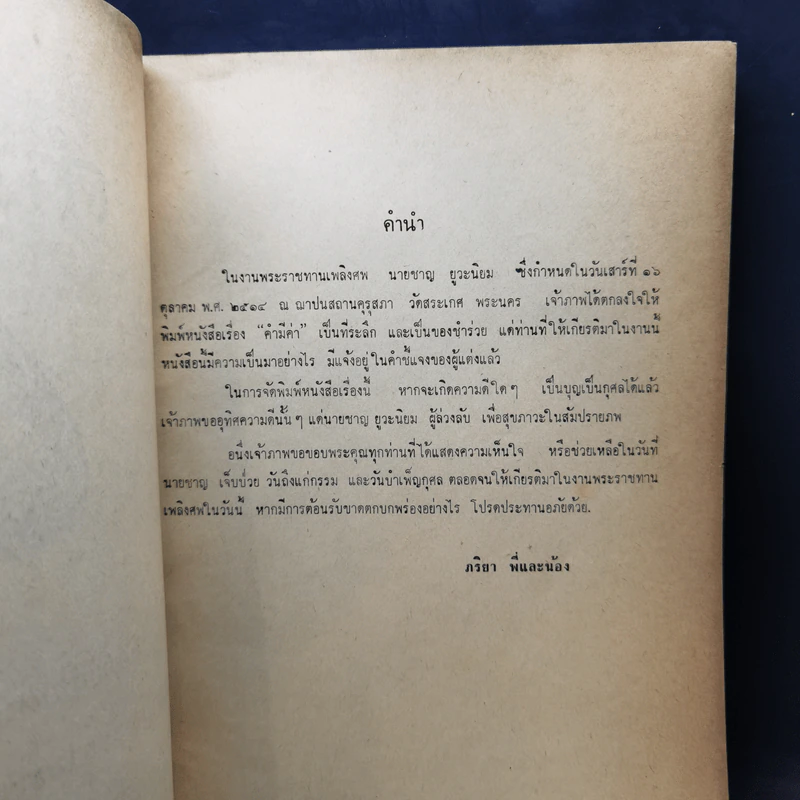 คำนำ
ในงานพระราชทานเพลิงศพ นายชาญ ยูวะนิยม ซึ่งกำหนดในวันเสาร์ที่ ๑๖
ตุลาคม พ.ศ. ๒๕๑๔ ณ ฌาปนสถานคุรุสภา วัดสระเกศ พระนคร เจ้าภาพได้ตกลงใจให้
พิมพ์หนังสือเรื่อง “คำมีค่า” เป็นที่ระลึก และเป็นของชำร่วย แด่ท่านที่ให้เกียรติมาในงานนี้
หนังสือนี้มีความเป็นมาอย่างไร มีแจ้งอยู่ในคำชี้แจงของผู้แต่งแล้ว
ในการจัดพิมพ์หนังสือเรื่องนี้ หากจะเกิดความดีใด ๆ เป็นบุญเป็นกุศลได้แล้ว
เจ้าภาพขออุทิศความดีนั้น ๆ แด่นายชาญ ยูวะนิยม ผู้ล่วงลับ เพื่อสุขภาวะในสัมปรายภพ
อนึ่งเจ้าภาพขอขอบพระคุณทุกท่านที่ได้แสดงความเห็นใจ หรือช่วยเหลือในวันที่
นายชาญ เจ็บป่วย วันถึงแก่กรรม และวันบำเพ็ญกุศล ตลอดจนให้เกียรติมาในงานพระราชทาน
เพลิงศพในวันนี้ หากมีการต้อนรับขาดตกบกพร่องอย่างไร โปรดประทานอภัยด้วย.
ภริยา พี่และน้อง